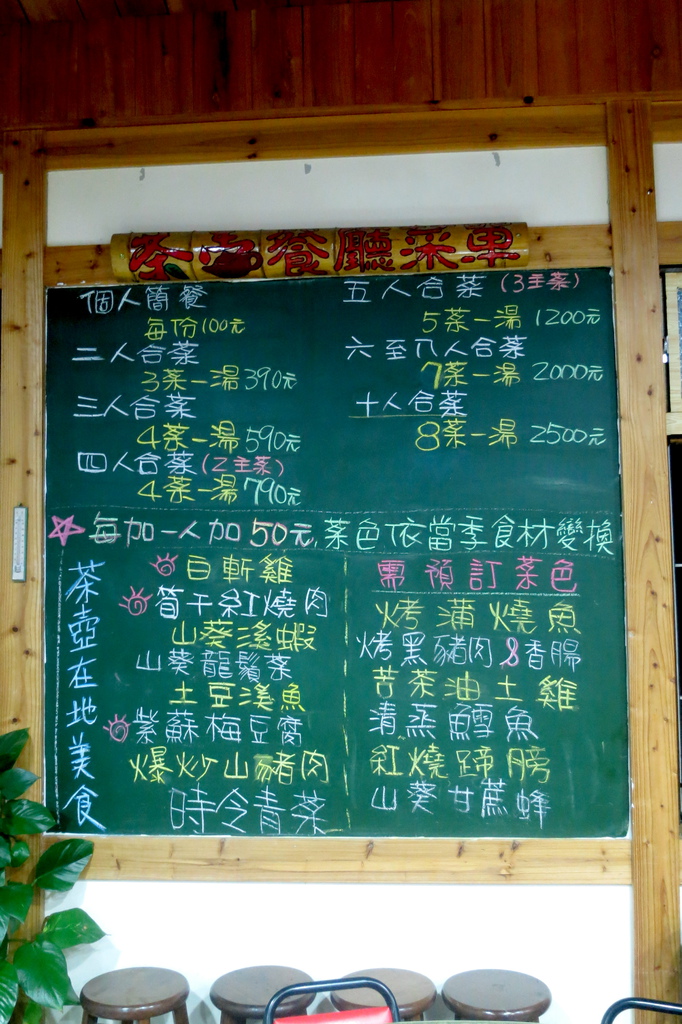 茶壺餐廳菜單
個人簡餐
每份100元
二人合菜
3菜一湯390元
三人合菜
4菜一湯590元
四人合菜(2主菜)
4菜一湯790元
五人合菜(3主菜)
5菜一湯1200元
六至八人合菜
7菜一湯2000元
十人合菜
8菜一湯2500元
每加一人加50元,菜色依當季食材變換
茶壺在地美食
白斬雞
筍干紅燒肉
山葵溪蝦
山葵龍鬚菜
土豆溪魚
紫蘇梅豆腐
爆炒山豬肉
時令青菜
需預訂菜色
烤蒲燒魚
烤黑豬肉&香腸
苦茶油土雞
清蒸鱈魚
紅燒蹄膀
山葵甘蔗蜂